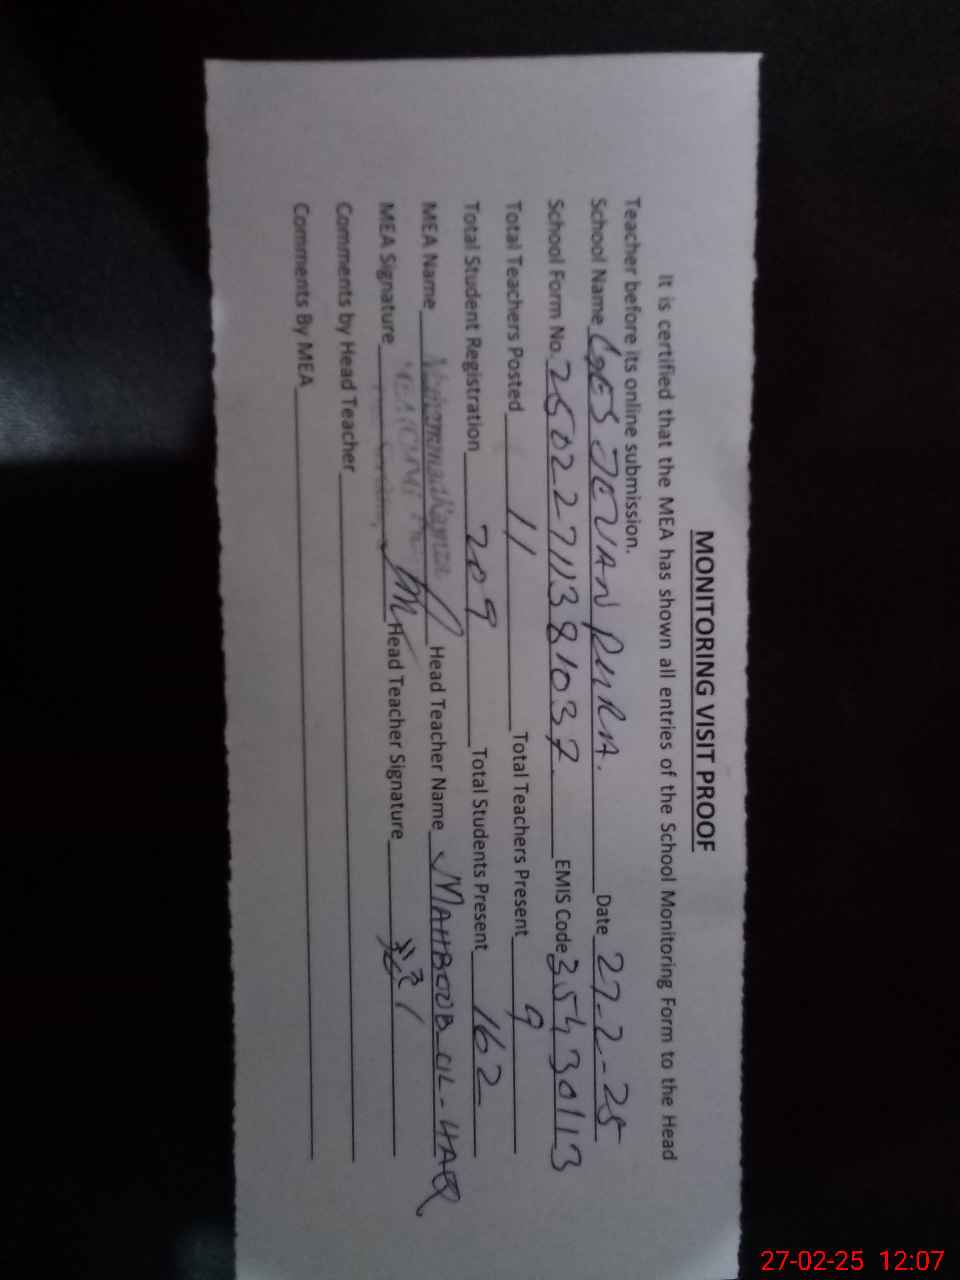 MONITORING VISIT PROOF
It is certified that the MEA has shown all entries of the School Monitoring Form to the Head
Teacher before its online submission.
School Name GES JEVAN PURA. Date 27-2-25
School Form No. 25022711381037 EMIS Code 35430113
Total Teachers Posted 11 Total Teachers Present 9
Total Student Registration 209 Total Students Present 162
MEA Name Head Teacher Name MAHBOOB-UL-HAQ
MEA Signature Head Teacher Signature
Comments by Head Teacher
Comments By MEA
27-02-25 12:07